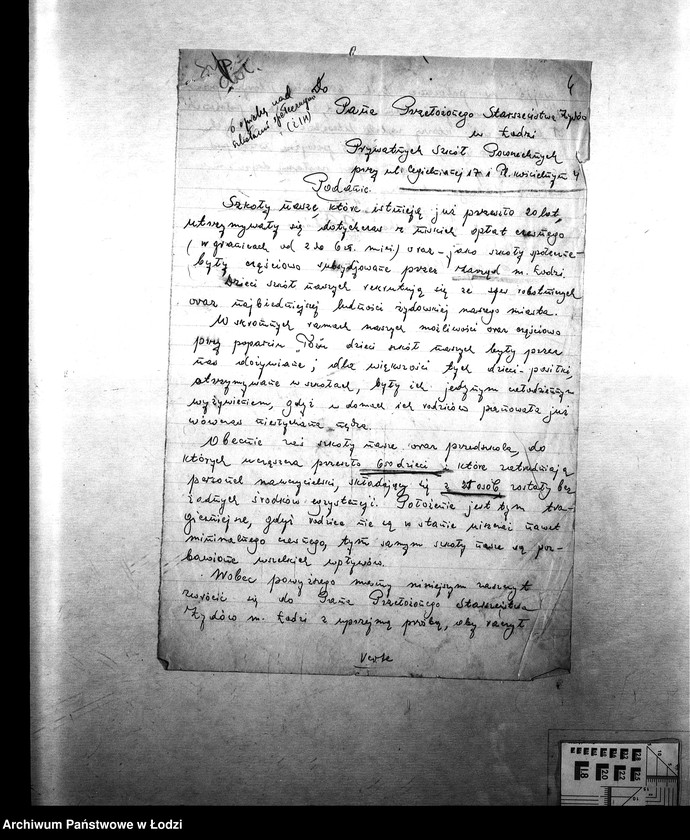 4
Do
Pana Przełożonego Starszeństwa Żydów
w Łodzi
Prywatnych Szkół Powszechnych
przy ul. Cegielnianej 17 i Pl. Kościelnym 4
Podanie.
Szkoły nasze, które istnieją już przeszło 20 lat,
utrzymywały się dotychczas z niskich opłat czesnego
(w granicach od 2 do 6 zł. mies.) oraz – jako szkoły społeczne –
były częściowo subsydjowane przez Zarząd m. Łodzi.
Dzieci szkół naszych rekrutują się ze sfer robotniczych
oraz najbiedniejszej ludności żydowskiej naszego miasta.
W skromnych ramach naszych możliwości oraz częściowo
przy poparciu dzieci szkół naszych były przez
nas dożywiane; dla większości tych dzieci – posiłki,
otrzymywane w szkołach, były ich jedynym codziennym
wyżywieniem, gdyż w domach ich rodziców panowała już
wówczas niesłychana nędza.
Obecnie zaś szkoły nasze oraz przedszkola, do
których uczęszcza przeszło 650 dzieci i które zatrudniają
personel nauczycielski, składający się z osób zostały bez
żadnych środków egzystencji. Położenie jest tym tra-
giczniejsze, gdyż rodzice nie są w stanie uiszczać nawet
minimalnego czesnego, tym samym szkoły nasze są poz-
bawione wszelkich wpływów.
Wobec powyższego mamy niniejszym zaszczyt
zwrócić się do Pana Przełożonego Starszeństwa
Żydów m. Łodzi z uprzejmą prośbą, aby raczył
Verte
18 20 22 25
Archiwum Państwowe w Łodzi